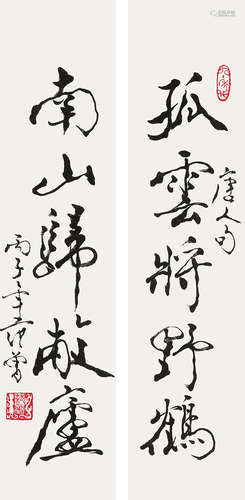 孤雲將野鶴
唐人句
南山歸敝廬
丙子年范曾